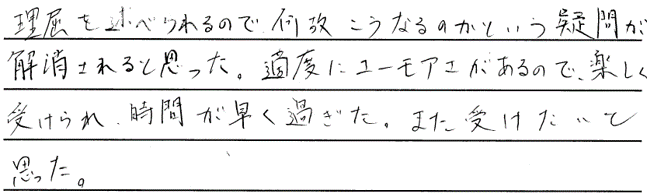 理屈を述べられるので、何故こうなるのかという疑問が
解消されると思った。適度にユーモアエがあるので、楽しく
受けられ、時間が早く過ぎた。また受けたいと
思った。